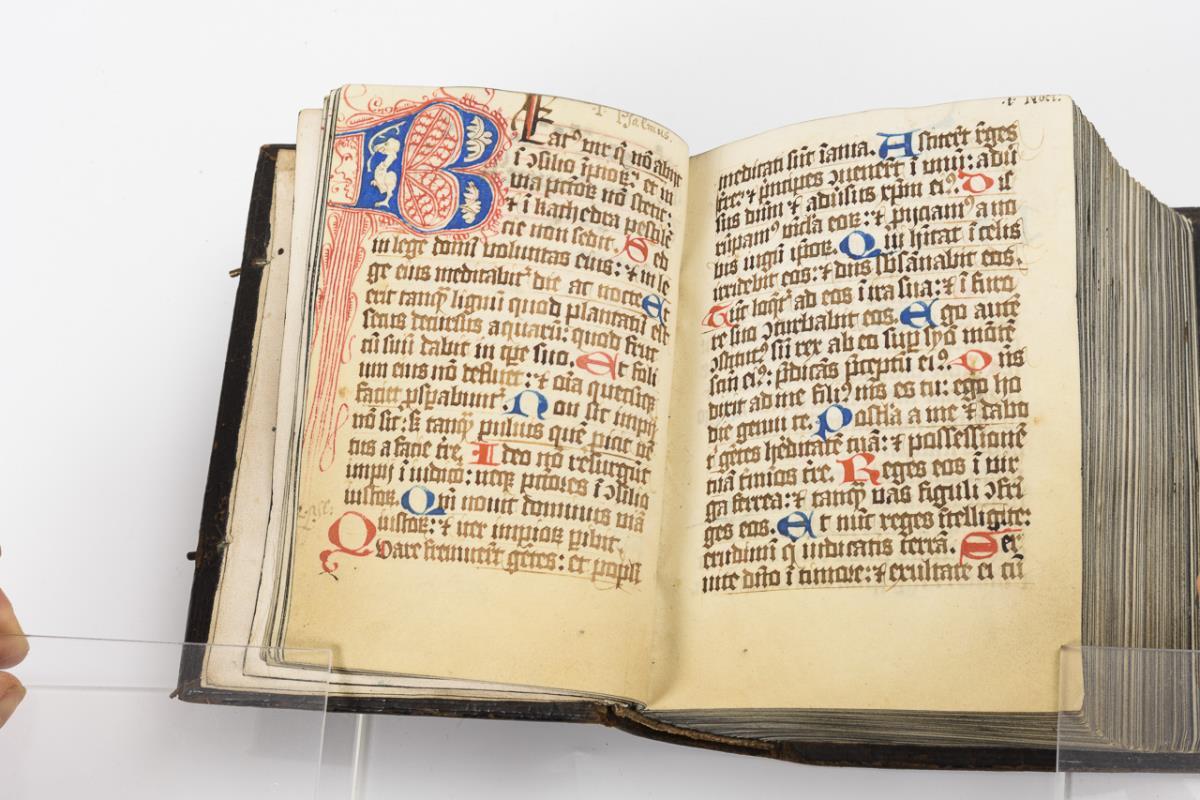 Psalmus
BEat⁹ vir q̄ nō abiit
ī ↄsilio īpioꝝ: et in
via pctoꝝ nō stetit:
⁊ ī kathedra pestilē
tie non sedit. Sed
in lege domī voluntas eius: ⁊ in le
ge eius meditabit᷑ die ac nocte Et
erit tanqꝫ lignū quod plantatū est
secus decursus aquarū: quod fruct
cū suū dabit in tpe suo. Et foli
um eius nō defluet: ⁊ oīa quecūqꝫ
faciet pspabunt᷑. Non sic impij
nō sic: sꝫ tanqꝫ puluis quē picit vē
tus a facie tre. Ideo nō resurgūt
impij ī iudicio: neqꝫ pctores ī ↄsilio
iustoꝝ. Qm̄ nouit dominus viā
iustoꝝ: ⁊ iter impioꝝ pibit.
Quare fremuerūt gētes: et popli
meditati sūt īania. Astiterūt reges
tre: ⁊ prīcipes ↄuenerūt ī vnū: adū
sus dūm ⁊ adūsus xpm ei⁹. Dis
rūpam⁹ vīcla eoꝝ: ⁊ pijciam⁹ a no
bis iugū ipoꝝ. Qui hītat ī celis
irridebit eos: ⁊ dns sbsānabit eos.
Tūc loqt᷑ ad eos ī ira sua: ⁊ ī furo
re suo ↄturbabit eos. Ego autē
ↄstitut⁹ sū rex ab eo sup syō mōtē
scm̄ ei⁹: p̄dicās p̄ceptū ei⁹. Dns
dixit ad me fili⁹ ms es tu: ego ho
die genui te. Postla a me ⁊ dabo
t᷑ gētes hēditatē tuā: ⁊ possessionē
tuā tmīos tre. Reges eos ī vir
ga ferrea: ⁊ tanqꝫ vas figuli ↄfri
ges eos. Et nūc reges ītelligite:
erudimī q̄ iudicatis terrā. Ser
uite dn̄o ī timore: ⁊ exultate ei cū